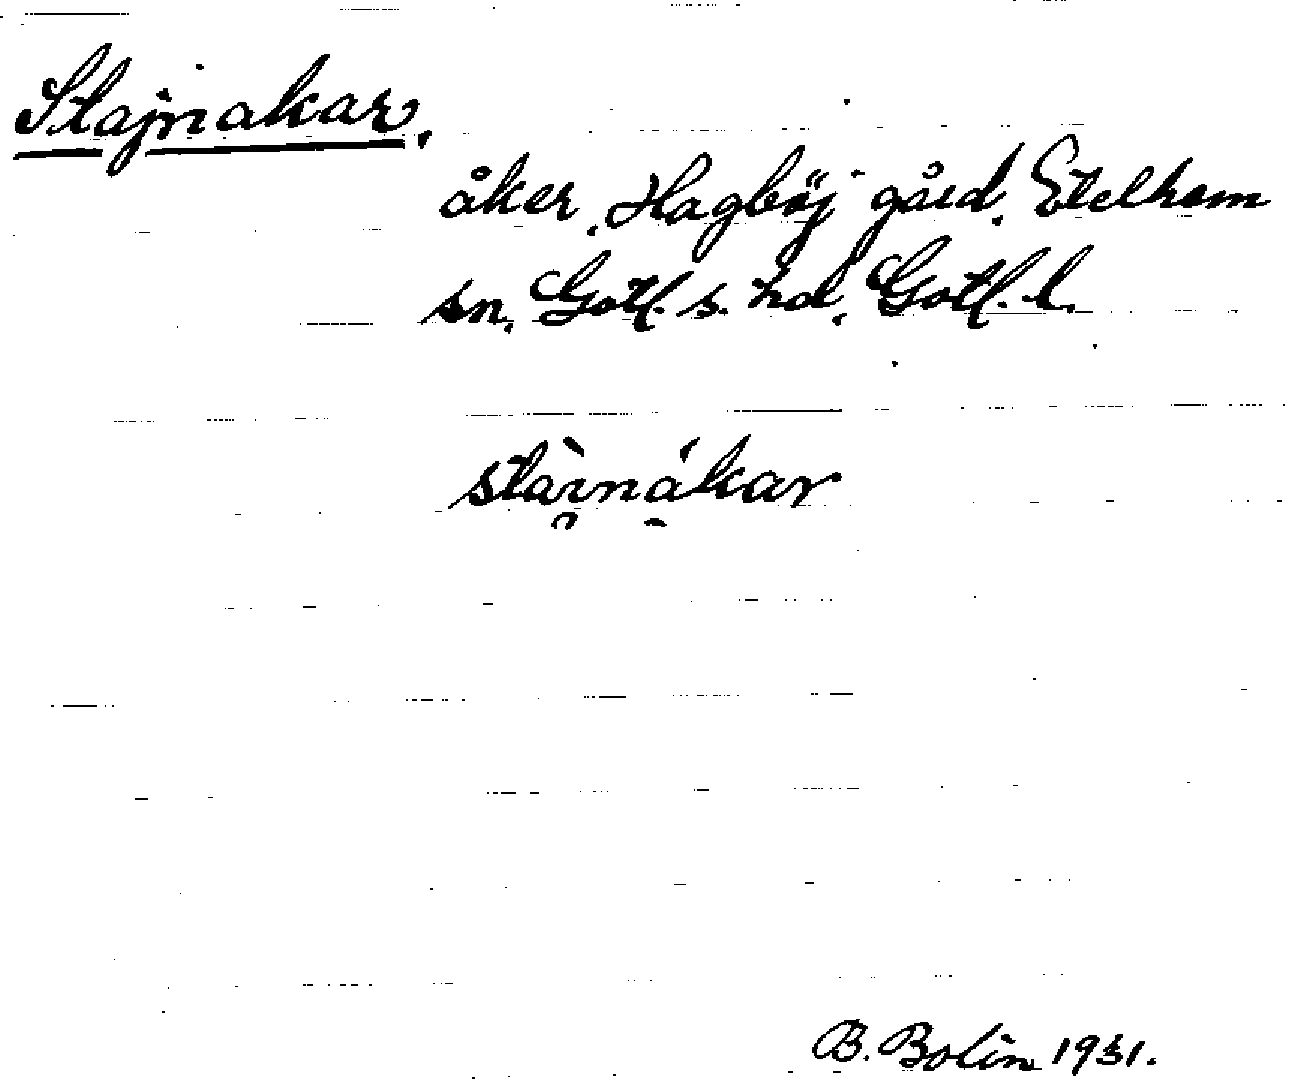 Stajnakar.
åker, Hagböj gård, Etelhem
sn, Gotl. s. hd, Gotl. l.
stàinákar
B. Bolin 1931.